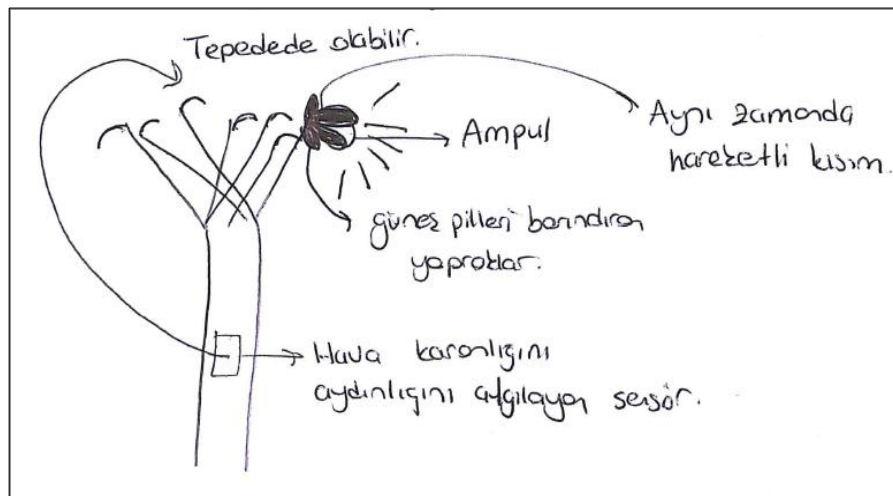 Tepedede olabilir.
Ampul
Aynı zamanda
hareketli kısım.
güneş pilleri barındıran
yapraklar.
Hava karanlığını
aydınlığını algılayan sensör.